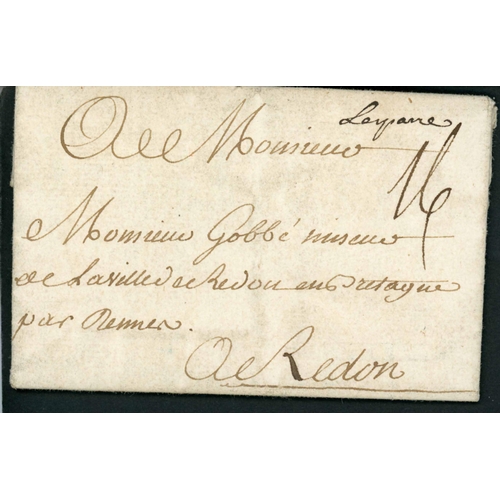 Lesparre
A Monsieur
16
Monsieur Gobbé miseur
de la ville de Redon en Bretagne
par Rennes.
A Redon